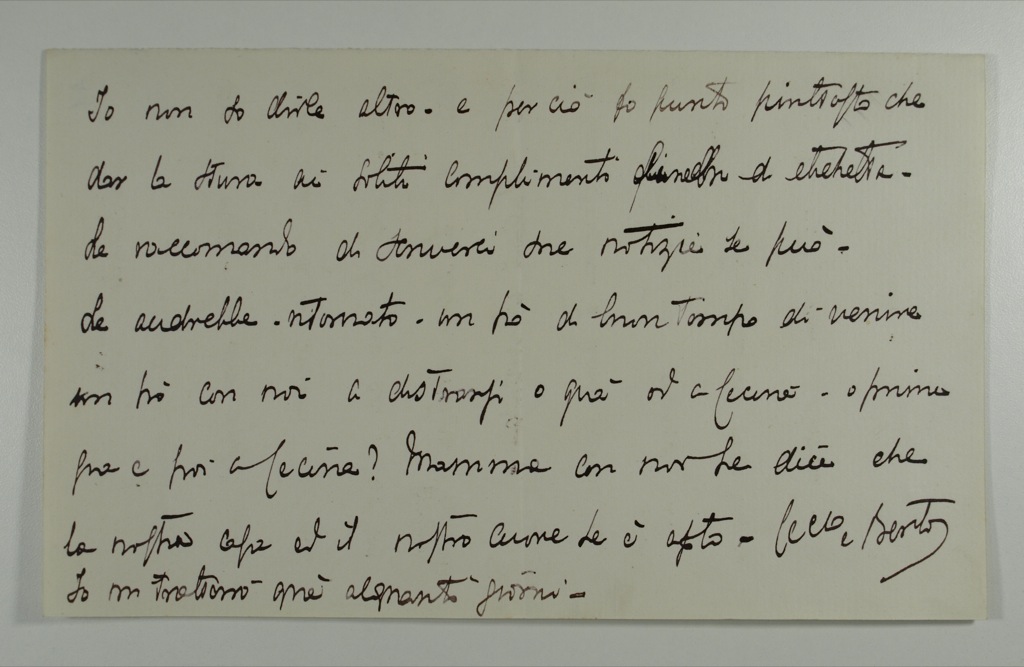 Io non so dirle altro - e perciò fo punto piuttosto che
dar la stura ai soliti complimenti d etichetta -
Le raccomando di scriverci sue notizie se può -
Le andrebbe - ritornato - un pò di buon tempo di venire
un pò con noi a distrarsi o quà od a Cecina - o prima
qua e poi a Cecina? Mamma con noi Le dice che
la nostra casa ed il nostro cuore Le è apto - e Berto
Io mi tratterrò quà alquanti giorni -